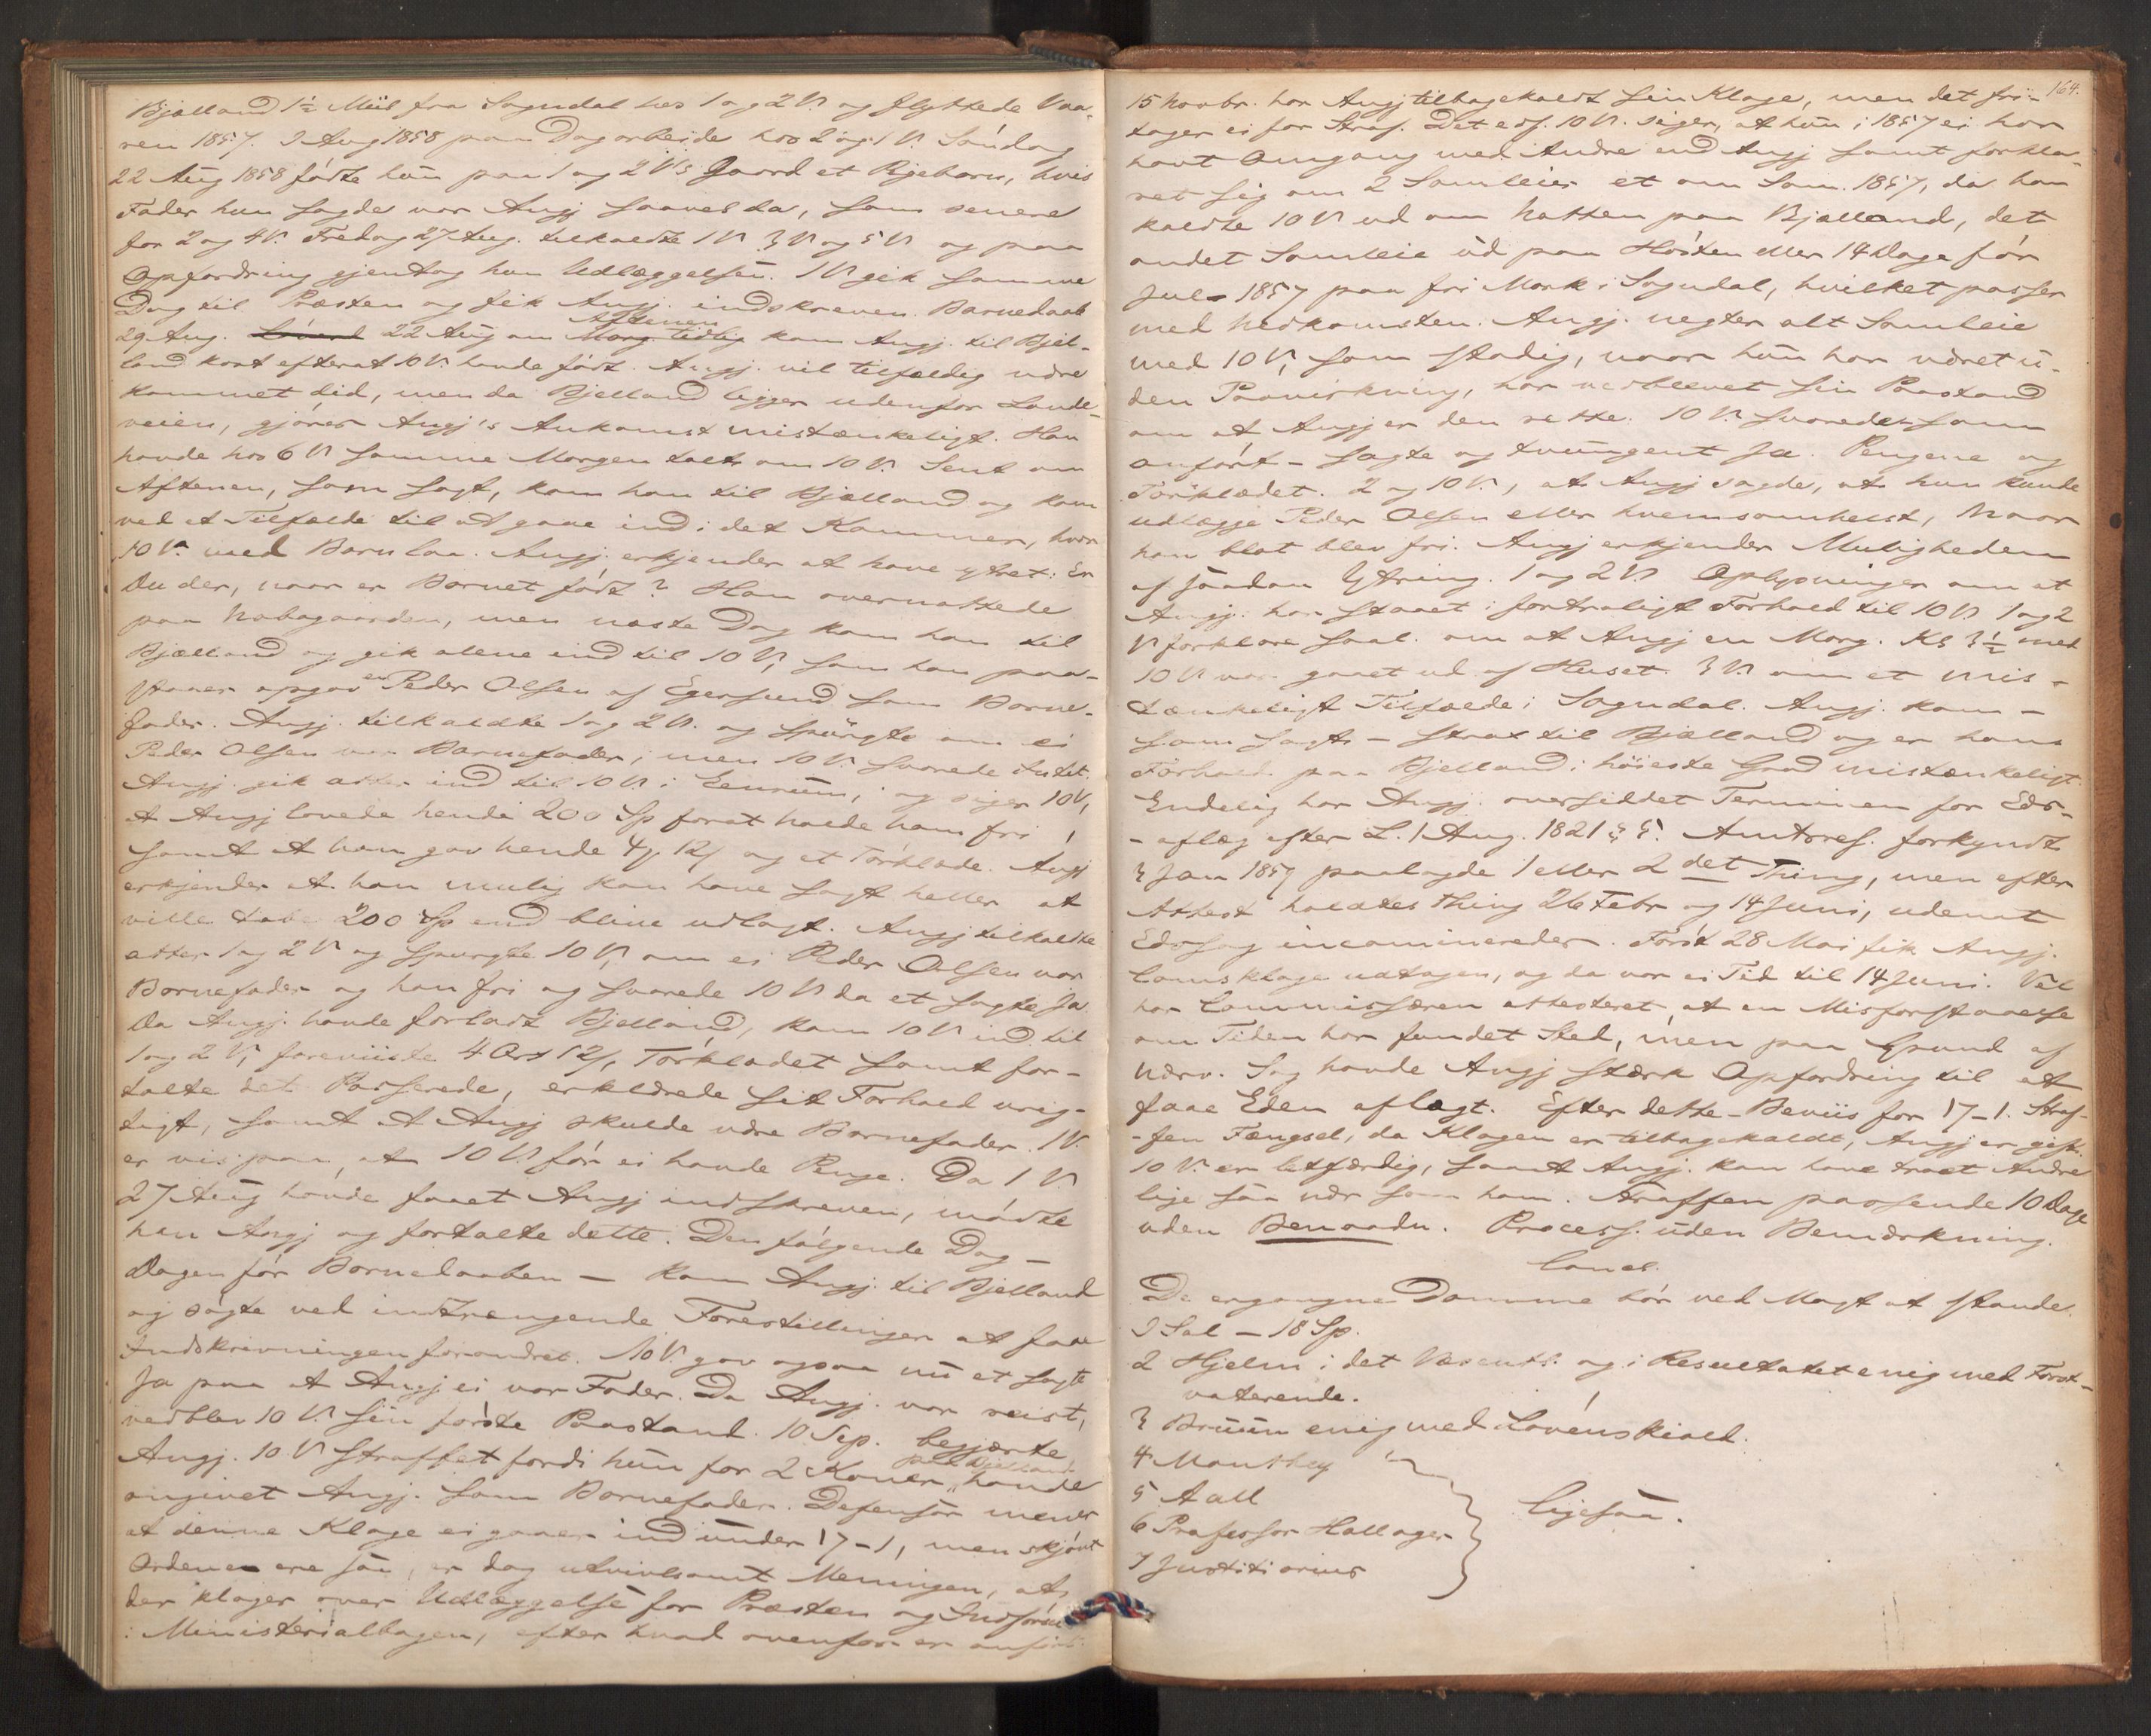 Bjælland 1½ Miil fra Sogndal hos 1 og 2 V. og flyttede Vaa-
ren 1857. I Aug 1858 paa Dagarbeide hos 2 og 1 V. Søndag
22 Aug 1858 fødte hun paa 1 og 2 V's Gaard et Pigebarn, hvis
Fader hun sagde var Angj saavel da, som senere
for 2 og 4 V. Fredag 27 Aug. tilkaldte 1 V. 3 V og 5 V og paa
Opfordring gjentog hun Udlæggelsen. 1 V gik samme
Dag til Præsten og fik Angj. indskreven. Barnedaab
29 Aug. 22 Aug om Aftenen kom Angj. til Bjel-
land kort efterat 10 V. havde født. Angj. vil tilfældig være
kommet did, men da Bjelland ligger udenfor Lande-
veien, gjøres Angj's Ankomst mistænkeligt. Han
havde hos 6 V samme Morgen talt om 10 V. Sent om
Aftenen, som sagt, kom han til Bjælland og kom
ved et Tilfælde til at gaae ind i det Kammer, hvor
10 V. med Barn laa. Angj. erkjender at have ytret: Er
Du der, naar er Barnet født? Han overnattede
paa Nabogaarden, men næste Dag kom han til
Bjælland og gik alene ind til 10 V, som han paa-
staaer opgav en Peder Olsen af Egersund som Barne-
fader. Angj. tilkaldte 1 og 2 V. og spurgte om ei
Peder Olsen var Barnefader, men 10 V. svarede Intet.
Angj. gik atter ind til 10 V i Eenrum, og siger 10 V,
at Angj lovede hende 200 Sp forat holde ham fri,
samt at han gav hende 4 12 og et Tørklæde. Angj
erkjender at han mulig kan have sagt heller at
ville tabe 200 Sp end blive udlagt. Angj tilkaldte
atter 1 og 2 V og spurgte 10 V, om ei Peder Olsen var
Barnefader og han fri og svarede 10 V da et sagte Ja
Da Angj. havde forladt Bjelland, kom 10 V ind til
1 og 2 V, foreviiste 4 Ort 12, Tørklædet samt for-
talte det Passerede, erklærede sit Forhold urig-
tigt, samt at Angj skulde være Barnefader. 1 V.
er vis paa, at 10 V. før ei havde Penge. Da 1 V.
27 Aug havde faaet Angj indskreven, mødte
han Angj og fortalte dette. Den følgende Dag -
Dagen før Barnedaaben - kom Angj. til Bjelland
og søgte ved indtrængende Forestillinger at faae
Indskrivningen forandret. 10 V. gav ogsaa nu et sagte
Ja paa at Angj ei var Fader. Da Angj. var reist,
vedblev 10 V. sin første Paastand. 10 Sep. begjærte
Angj. 10 V straffet fordi hun for 2 Koner paa Bjelland havde
angivet Angj. som Barnefader. Defensor mener
at denne Klage ei gaaer ind under 17-1, men skjønt
Ordene ere saa, er dog utvivlsomt Meningen, at
der klages over Udlæggelse for Præsten og Indførsel
i Ministerialbogen, efter hvad ovenfor er anført.
164.
15 Novbr. har Angj tilbagekaldt sin Klage, men det fri-
tager ei for Straf. Det edf. 10 V. siger, at hun i 1857 ei har
havt Omgang med Andre end Angj samt forkla-
ret sig om 2 Samleier et om Som. 1857, da han
kaldte 10 V ud om Natten paa Bjælland, det
andet Samleie ud paa Høsten eller 14 Dage før
Jul 1857 paa fri Mark i Sogndal, hvilket passer
med Nedkomsten. Angj. negter alt Samleie
med 10 V, som stadig, naar hun har været u-
den Paavirkning, har vedblevet sin Paastand
om at Angj er den rette. 10 V. svarede som
anført - sagte og tvungent Ja. Pengene og
Tørklædet. 2 og 10 V., at Angj sagde, at hun kunde
udlægge Peder Olsen eller hvemsomhelst, naar
han blot blev fri. Angj erkjender Muligheden
af saadan Ytring. 1 og 2 V. Oplysninger om at
Angj. har staaet i fortroligt Forhold til 10 V 1 og 2
V forklare saal. om at Angj en Morg. Kl 3½ med
10 V var gaaet ud af Huset. 3 V. om et mis-
tænkeligt Tilfælde i Sogndal. Angj. kom -
som sagt - strax til Bjælland og er hans
Forhold paa Bjelland i høieste Grad mistænkeligt.
Endelig har Angj. oversiddet Terminen for Eds-
-aflæg efter L. 1 Aug. 1821 § 5. Amtsres. forkyndt
3 Jan 1859 paalagde 1 eller 2 det Thing, men efter
Attest holdtes Thing 26 Febr og 14 Juni, udenat
Edssag incaminer­edes. Først 28 Mai fik Angj.
Comsklage udtagen, og da var ei Tid til 14 Juni. Vel
har Commissæren attesteret, at en Misforstaaelse
om Tiden har fundet Sted, men paa Grund af
nærv. Sag havde Angj stærk Opfordring til at
faae Eden aflagt. Efter dette - Beviis for 17-1. Straf-
-fen Fængsel, da Klagen er tilbagekaldt, Angj er gift.
10 V. er letfærdig, samt Angj. kan have troet Andre
lige saa nær som ham. Straffen passende 10 Dage
uden Benaadn. Process. uden Bemærkning.
Concl.
De ergangne Domme bør ved Magt at stande.
I Sal - 18 Sp.
2 Hjelm i det Væsentl. og i Resultatet enig med Først-
voterende.
3 Bruun enig med Løvenskiold.
4 Manthey
5 Aall
6 Professor Hallager
7 Justitiarius
ligesaa.